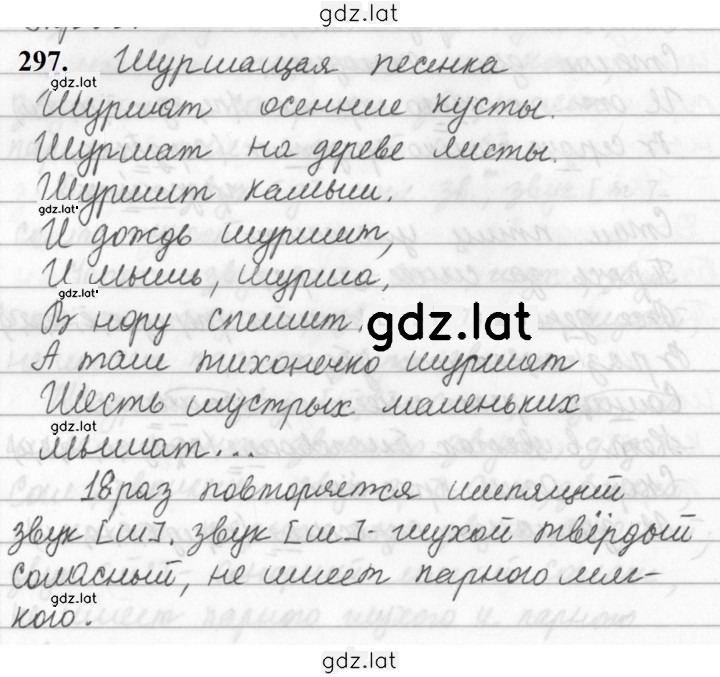 gdz.lat
297. Шуршащая песенка
gdz.lat
Шуршат осенние кусты.
Шуршат на дереве листы.
Шуршит камыш.
gdz.lat
И дождь шуршит,
И мышь, шурша,
gdz.lat
В нору спешит.
gdz.lat
А там тихонечко шуршат
Шесть шустрых маленьких
gdz.lat
мышат...
18 раз повторяется шипящий
звук [ш], звук [ш] - глухой твёрдый
согласный, не имеет парного мяг-
gdz.lat
кого.
gdz.lat